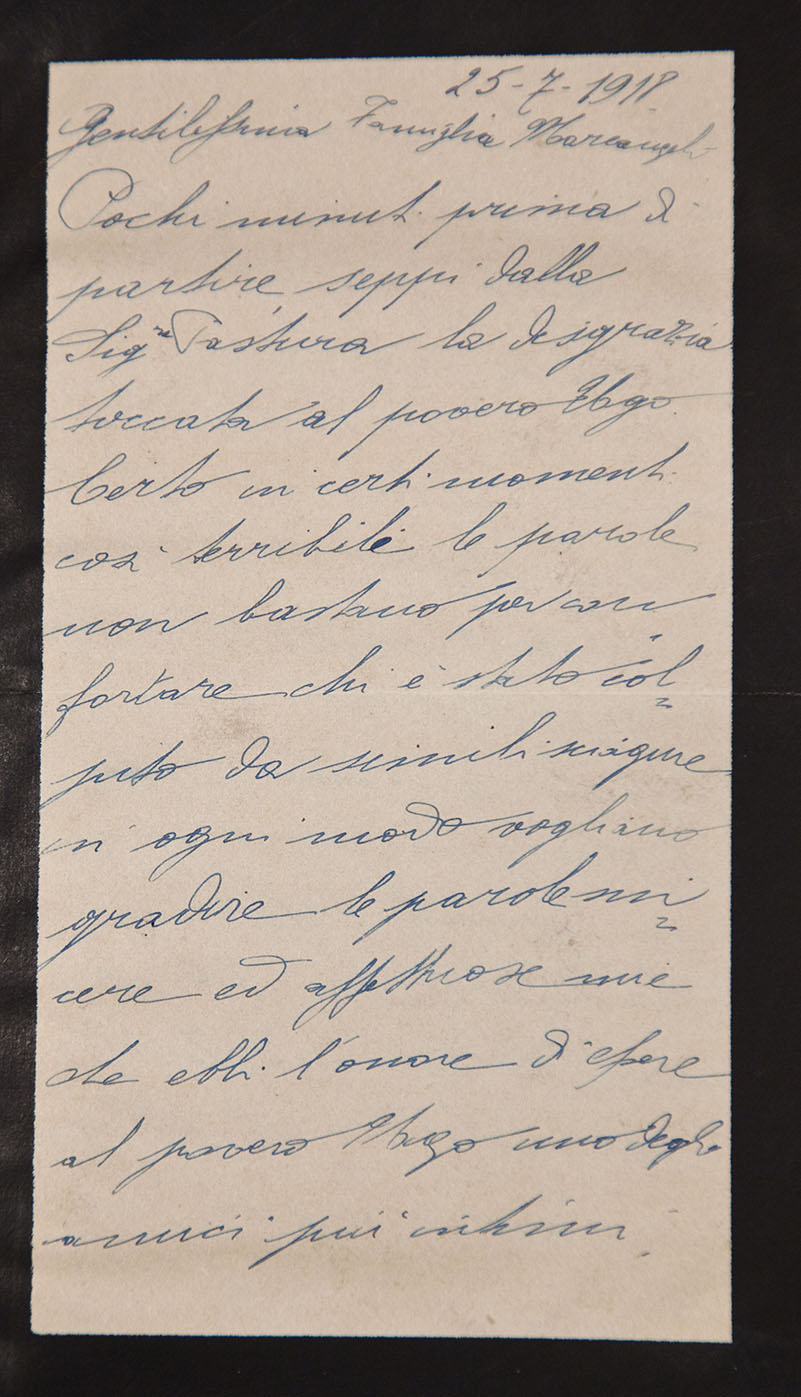 25-7-1918
Gentilissima Famiglia Marcangeli
Pochi minuti prima di
partire seppi dalla
Sig.ra Pastura la disgrazia
toccata al povero Ugo.
Certo in certi momenti
così terribili le parole
non bastano per con
fortare chi è stato col=
pito da simili sciagure
in ogni modo vogliano
gradire le parole sin=
cere ed affettuose mie
che ebbi l'onore di essere
al povero Ugo uno degli
amici più intimi.